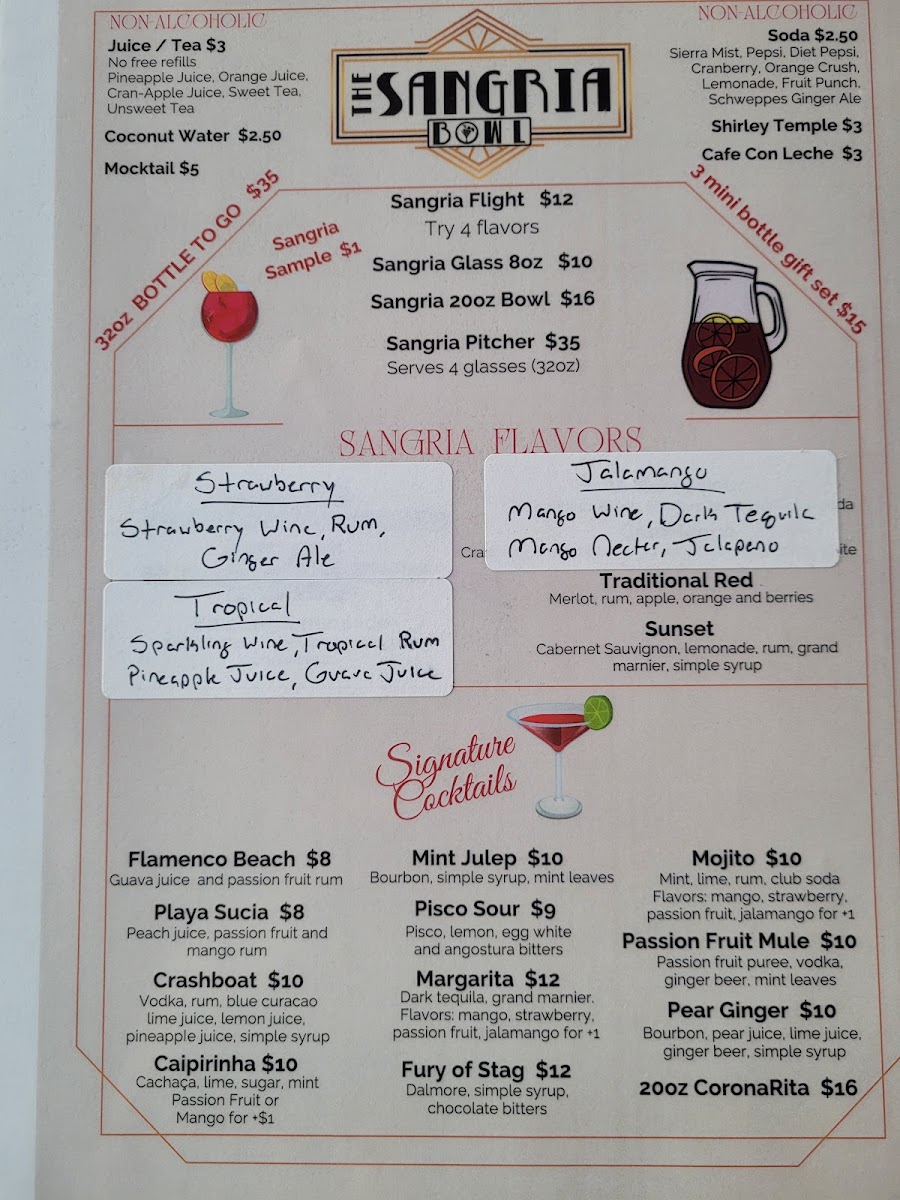 NON-ALCOHOLIC
Juice / Tea $3
No free refills
Pineapple Juice, Orange Juice,
Cran-Apple Juice, Sweet Tea,
Unsweet Tea
Coconut Water $2.50
Mocktail $5
THE SANGRIA
BOWL
NON-ALCOHOLIC
Soda $2.50
Sierra Mist, Pepsi, Diet Pepsi,
Cranberry, Orange Crush,
Lemonade, Fruit Punch,
Schweppes Ginger Ale
Shirley Temple $3
Cafe Con Leche $3
32oz BOTTLE TO GO $35
Sangria
Sample $1
Sangria Flight $12
Try 4 flavors
Sangria Glass 8oz $10
Sangria 20oz Bowl $16
Sangria Pitcher $35
Serves 4 glasses (32oz)
3 mini bottle gift set $15
SANGRIA FLAVORS
Strawberry
Strawberry Wine, Rum,
Ginger Ale
Tropical
Sparkling Wine, Tropical Rum
Pineapple Juice, Guava Juice
Jalamango
Mango Wine, Dark Tequila
Mango Necter, Jalapeno
Traditional Red
Merlot, rum, apple, orange and berries
Sunset
Cabernet Sauvignon, lemonade, rum, grand
marnier, simple syrup
Signature
Cocktails
Flamenco Beach $8
Guava juice and passion fruit rum
Playa Sucia $8
Peach juice, passion fruit and
mango rum
Crashboat $10
Vodka, rum, blue curacao
lime juice, lemon juice,
pineapple juice, simple syrup
Caipirinha $10
Cachaça, lime, sugar, mint
Passion Fruit or
Mango for +$1
Mint Julep $10
Bourbon, simple syrup, mint leaves
Pisco Sour $9
Pisco, lemon, egg white
and angostura bitters
Margarita $12
Dark tequila, grand marnier.
Flavors: mango, strawberry,
passion fruit, jalamango for +1
Fury of Stag $12
Dalmore, simple syrup,
chocolate bitters
Mojito $10
Mint, lime, rum, club soda
Flavors: mango, strawberry,
passion fruit, jalamango for +1
Passion Fruit Mule $10
Passion fruit puree, vodka,
ginger beer, mint leaves
Pear Ginger $10
Bourbon, pear juice, lime juice,
ginger beer, simple syrup
20oz CoronaRita $16